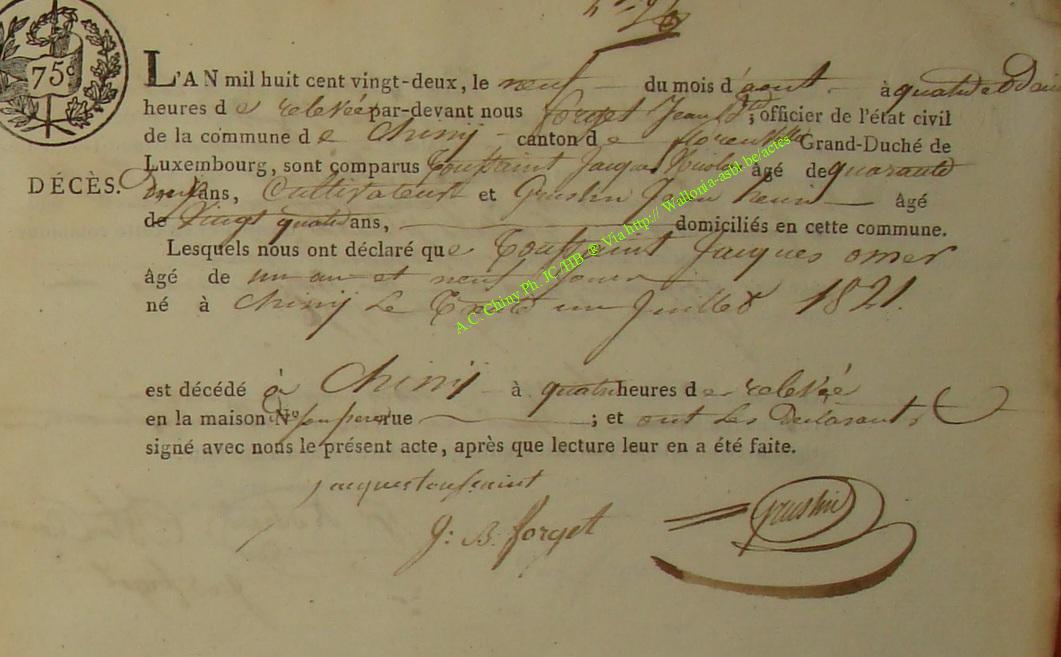 75c
L'AN mil huit cent vingt-deux, le neuf du mois d'aout à quatre et Demi
heures de relevée par-devant nous forget Jean Bte; officier de l'état civil
de la commune de Chiny canton de florenville Grand-Duché de
Luxembourg, sont comparus Toussaint Jacques Nicolas âgé de quarante
DÉCÈS.
deux ans, Cultivateur et Guislin Jean henri âgé
de Vingt quatre ans, domiciliés en cette commune.
Lesquels nous ont déclaré que Toussaint Jacques omer
âgé de un an et neuf jours
né à Chiny Le Trente un Juillet 1821.
est décédé à Chiny à quatre heures de relevée
en la maison No son pere rue ; et ont Les Declarants
signé avec nous le présent acte, après que lecture leur en a été faite.
jacques toussaint
J: B. forget
Guislin
A.C. Chiny Ph. JC/HB @ Via http:// Wallonia-asbl.be/actes